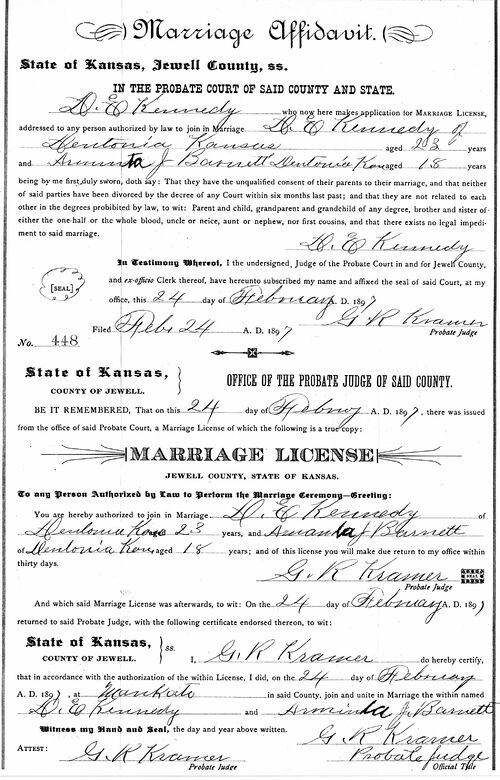 Marriage Affidavit.
State of Kansas, Jewell County, ss.
IN THE PROBATE COURT OF SAID COUNTY AND STATE.
D. E Kennedy who now here makes application for MARRIAGE LICENSE,
addressed to any person authorized by law to join in Marriage D. E Kennedy of
Dentonia Kansas aged 23 years
and Arminta J Barnett Dentonia Kan aged 18 years
being by me first duly sworn, doth say: That they have the unqualified consent of their parents to their marriage, and that neither
of said parties have been divorced by the decree of any Court within six months last past; and that they are not related to each
other in the degrees prohibited by law, to wit: Parent and child, grandparent and grandchild of any degree, brother and sister of
either the one-half or the whole blood, uncle or neice, aunt or nephew, nor first cousins, and that there exists no legal impedi-
ment to said marriage.
D. E Kennedy
In Testimony Whereof, I the undersigned, Judge of the Probate Court in and for Jewell County,
and ex-officio Clerk thereof, have hereunto subscribed my name and affixed the seal of said Court, at my
[SEAL]
office, this 24 day of Februay A. D. 1897
G R Kramer
Probate Judge
Filed Feb. 24 A. D. 1897
No. 448
State of Kansas,
COUNTY OF JEWELL.
OFFICE OF THE PROBATE JUDGE OF SAID COUNTY.
BE IT REMEMBERED, That on this 24 day of Febuy A. D. 1897, there was issued
from the office of said Probate Court, a Marriage License of which the following is a true copy:
MARRIAGE LICENSE
JEWELL COUNTY, STATE OF KANSAS.
To any Person Authorized by Law to Perform the Marriage Ceremony—Greeting:
You are hereby authorized to join in Marriage D. E Kennedy of
Dentonia Kan aged 23 years, and Amanta J Barnett
of Dentonia Kan, aged 18 years; and of this license you will make due return to my office within
thirty days.
G. R Kramer
Probate Judge
And which said Marriage License was afterwards, to wit: On the 24 day of Februay A. D. 1897
returned to said Probate Judge, with the following certificate endorsed thereon, to wit:
State of Kansas,
COUNTY OF JEWELL.
ss.
I, G. R Kramer do hereby certify,
that in accordance with the authorization of the within License, I did, on the 24 day of Februay
A. D. 1897, at Mankato in said County, join and unite in Marriage the within named
D. E Kennedy and Arminta J. Barnett
Witness my Hand and Seal, the day and year above written.
G R Kramer
Probate Judge
Official Title
ATTEST: G R Kramer
Probate Judge